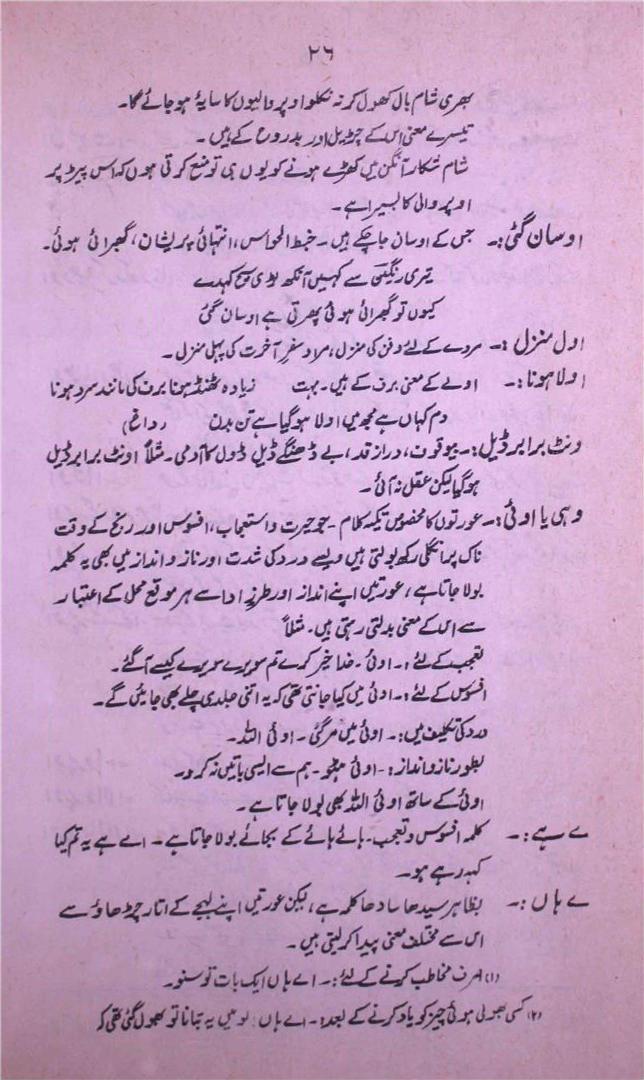 ۲۶
بھری شام بال کھول کر نہ نکلو اوپر والیوں کا سایۂ ہو جائے گا۔
تیسرے معنی اس کے چڑیل اور بدروح کے ہیں۔
شام شکار آنگن میں کھڑے ہونے کو یوں ہی تو منع کرتی ہوں کہ اس پیڑ پر
اوپر والی کا بسیرا ہے۔
اوسان گئی:۔ جس کے اوسان جا چکے ہیں۔ خبط الحواس، انتہائی پریشان، گھبرائی ہوئی۔
تیری رنگینی سے کہیں آنکھ لڑی سچ کہدے
کیوں تو گھبرائی ہوئی پھرتی ہے اوسان گئی
اول منزل:۔ مردے کے لئے دفن کی منزل، مراد سفرِ آخرت کی پہلی منزل۔
اولا ہونا:۔ اولے کے معنی برف کے ہیں۔ بہت زیادہ ٹھنڈا ہونا برف کی مانند سرد ہونا
دم کہاں ہے مجھ میں اولا ہو گیا ہے تن بدن (داغ)
ونٹ برابر ڈیل:۔ بیوقوف، دراز قد، بے ڈھنگے ڈیل ڈول کا آدمی۔ مثلاً اونٹ برابر ڈیل
ہو گیا لیکن عقل نہ آئی۔
وہی یا اوئی:۔ عورتوں کا مخصوص تکیہ کلام۔ جو حیرت و استعجاب، افسوس اور رنج کے وقت
ناک پر انگلی رکھ بولتی ہیں ویسے درد کی شدت اور ناز و انداز میں بھی یہ کلمہ
بولا جاتا ہے، عورتیں اپنے انداز اور طرزِ ادا سے ہر موقع محل کے اعتبار
سے اس کے معنی بدلتی رہتی ہیں۔ مثلاً
تعجب کے لئے:۔ اوئی۔ خدا خیر کرے تم سویرے سویرے کیسے آ گئے۔
افسوس کے لئے:۔ اوئی میں کیا جانتی تھی کہ یہ اتنی جلدی چلے بھی جائیں گے۔
درد کی تکلیف میں:۔ اوئی میں مر گئی۔ اوئی اللہ۔
بطور ناز و انداز:۔ اوئی ہٹو۔ ہم سے ایسی باتیں نہ کرو۔
اوئی کے ساتھ اوئی اللہ بھی بولا جاتا ہے۔
ے ہے:۔ کلمہ افسوس و تعجب۔ ہائے ہائے کے بجائے بولا جاتا ہے۔ اے ہے یہ تم کیا
کہہ رہے ہو۔
ے ہاں:۔ بظاہر سیدھا سادھا کلمہ ہے، لیکن عورتیں اپنے لہجے کے اتار چڑھاؤ سے
اس سے مختلف معنی پیدا کر لیتی ہیں۔
(۱) صرف مخاطب کرنے کے لئے:۔ اے ہاں ایک بات تو سنو۔
(۲) کسی بھولی ہوئی چیز کو یاد کرنے کے بعد:۔ اے ہاں! لو میں یہ بتانا تو بھول گئی تھی کہ